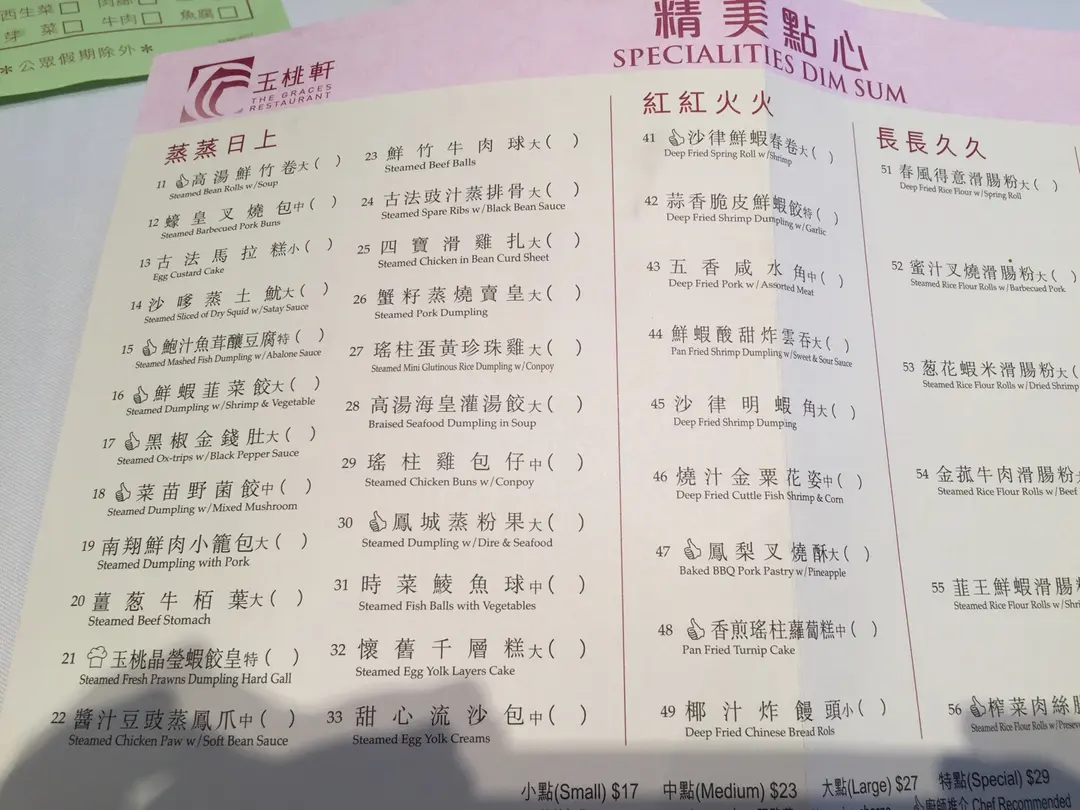 西生菜
菜
牛肉
魚腐
*公眾假期除外*
精美點心
SPECIALITIES DIM SUM
玉桃軒
THE GRACES
RESTAURANT
蒸蒸日上
11 高湯鮮竹卷大( )
Steamed Bean Rolls w/Soup
12 蠔皇叉燒包中( )
Steamed Barbecued Pork Buns
13 古法馬拉糕小( )
Egg Custard Cake
14 沙嗲蒸土魷大( )
Steamed Sliced of Dry Squid w/Satay Sauce
15 鮑汁魚茸釀豆腐特( )
Steamed Mashed Fish Dumpling w/Abalone Sauce
16 鮮蝦韮菜餃大( )
Steamed Dumpling w/Shrimp & Vegetable
17 黑椒金錢肚大( )
Steamed Ox-trips w/Black Pepper Sauce
18 菜苗野菌餃中( )
Steamed Dumpling w/Mixed Mushroom
19 南翔鮮肉小籠包大( )
Steamed Dumpling with Pork
20 薑葱牛栢葉大( )
Steamed Beef Stomach
21 玉桃晶瑩蝦餃皇特( )
Steamed Fresh Prawns Dumpling Hard Gall
22 醬汁豆豉蒸鳳爪中( )
Steamed Chicken Paw w/Soft Bean Sauce
23 鮮竹牛肉球大( )
Steamed Beef Balls
24 古法豉汁蒸排骨大( )
Steamed Spare Ribs w/Black Bean Sauce
25 四寶滑雞扎大( )
Steamed Chicken in Bean Curd Sheet
26 蟹籽蒸燒賣皇大( )
Steamed Pork Dumpling
27 瑤柱蛋黃珍珠雞大( )
Steamed Mini Glutinous Rice Dumpling w/Conpoy
28 高湯海皇灌湯餃大( )
Braised Seafood Dumpling in Soup
29 瑤柱雞包仔中( )
Steamed Chicken Buns w/Conpoy
30 鳳城蒸粉果大( )
Steamed Dumpling w/Dire & Seafood
31 時菜鯪魚球中( )
Steamed Fish Balls with Vegetables
32 懷舊千層糕大( )
Steamed Egg Yolk Layers Cake
33 甜心流沙包中( )
Steamed Egg Yolk Creams
紅紅火火
41 沙律鮮蝦春卷大( )
Deep Fried Spring Roll w/Shrimp
42 蒜香脆皮鮮蝦餃特( )
Deep Fried Shrimp Dumpling w/Garlic
43 五香咸水角中( )
Deep Fried Pork w/Assorted Meat
44 鮮蝦酸甜炸雲吞大( )
Pan Fried Shrimp Dumpling w/Sweet & Sour Sauce
45 沙律明蝦角大( )
Deep Fried Shrimp Dumping
46 燒汁金粟花姿中( )
Deep Fried Cuttle Fish Shrimp & Corn
47 鳳梨叉燒酥大( )
Baked BBQ Pork Pastry w/Pineapple
48 香煎瑤柱蘿蔔糕中( )
Pan Fried Turnip Cake
49 椰汁炸饅頭小( )
Deep Fried Chinese Bread Rols
長長久久
51 春風得意滑腸粉大( )
Deep Fried Rice Flour w/Spring Roll
52 蜜汁叉燒滑腸粉大( )
Steamed Rice Flour Rolls w/Barbecued Pork
53 葱花蝦米滑腸粉大(
Steamed Rice Flour Rolls w/Dried Shrimp
54 金菰牛肉滑腸粉
Steamed Rice Flour Rolls w/Beef
55 韮王鮮蝦滑腸
Steamed Rice Flour Rolls w/Shri
56 榨菜肉絲
Steamed Rice Flour Rolls w/Preserve
小點(Small) $17 中點(Medium) $23 大點(Large) $27 特點(Special) $29
廚師推介 Chef Recommended